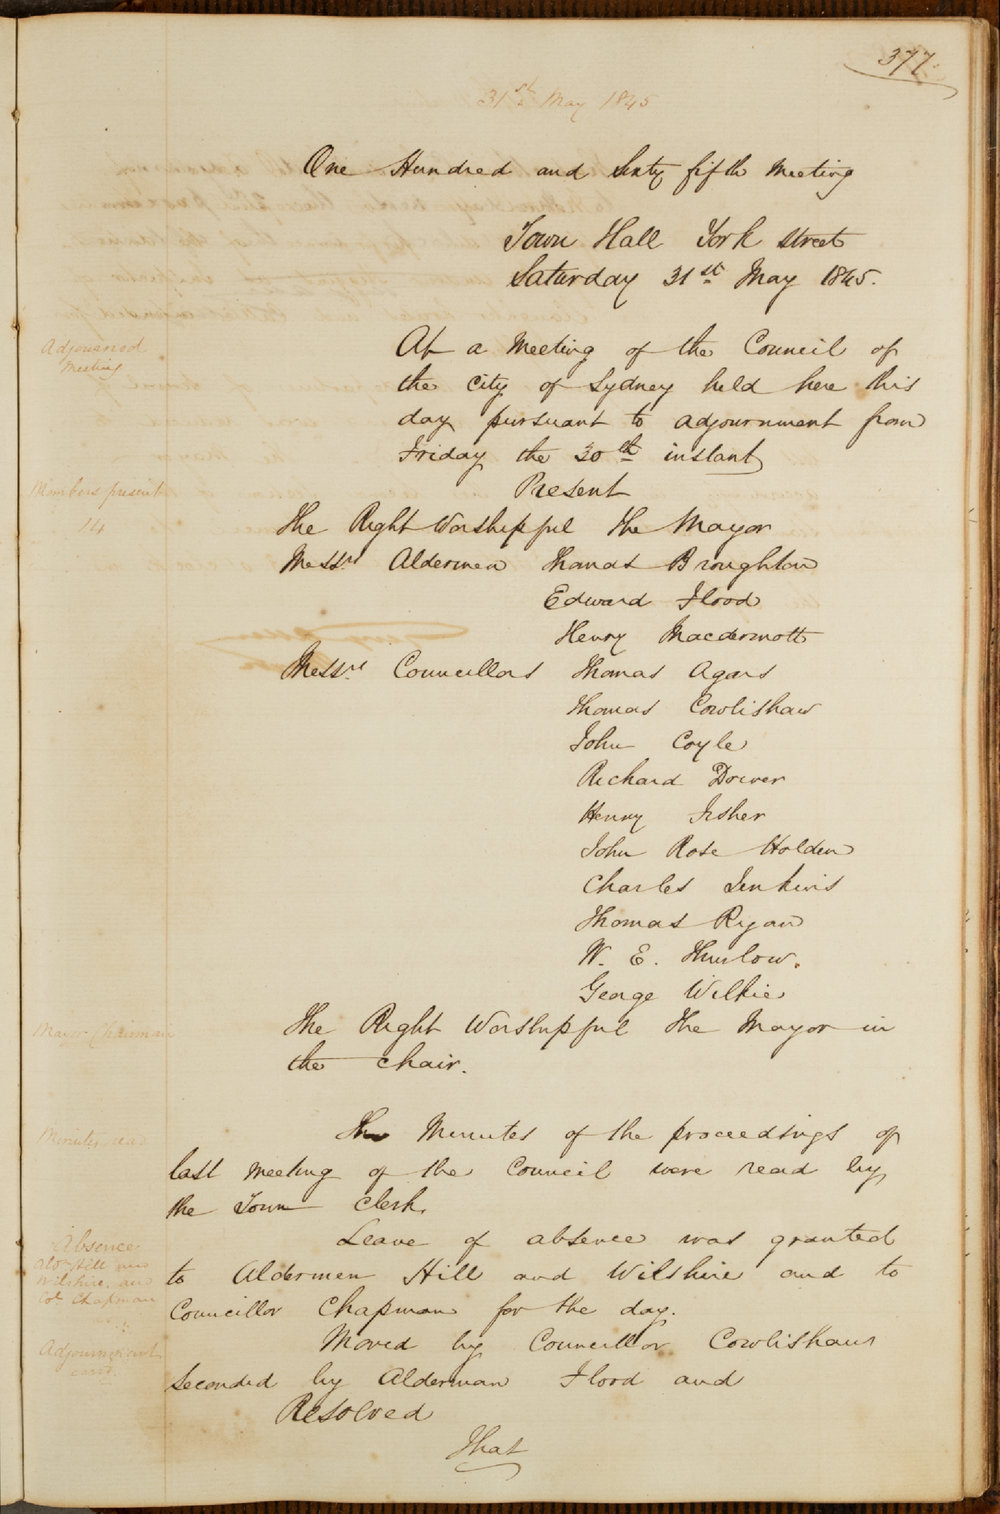 377.
31st May 1845
One Hundred and Sixty fifth Meeting
Town Hall York Street
Saturday 31st May 1845.
Adjourned
Meeting
At a Meeting of the Council of
the City of Sydney held here this
day pursuant to adjournment from
Friday the 30th instant
Present
Members present
14
The Right Worshipful The Mayor
Messrs Aldermen Thomas Broughton
Edward Flood
Henry Macdermott
Messrs Councillors Thomas Agars
Thomas Cowlishaw
John Coyle
Richard Driver
Henry Fisher
John Rose Holden
Charles Jenkins
Thomas Ryan
W. E. Thurlow.
George Wilkie
Mayor Chairman
The Right Worshipful The Mayor in
the chair.
Minutes read
The Minutes of the proceedings of
last Meeting of the Council were read by
the Town Clerk.
Absence
Aldn Hill and
Wilshire, and
Col. Chapman
Leave of absence was granted
to Aldermen Hill and Wilshire and to
Councillor Chapman for the day.
Adjournment
Moved by Councillor Cowlishaw
Seconded by Alderman Flood and
Resolved
That